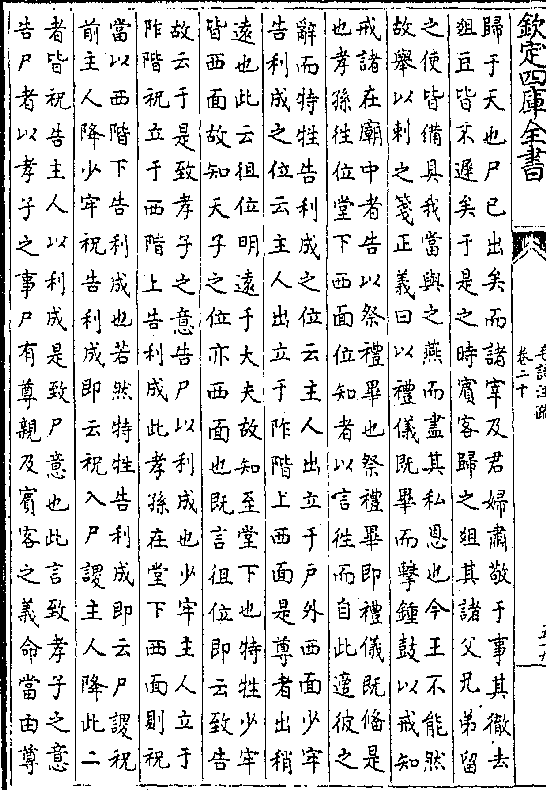 欽定四庫全書
毛詩注疏
卷二十
歸于天也尸已出矣而諸宰及君婦肅敬于事其徹去
俎豆皆不遲矣于是之時賓客歸之俎其諸父兄弟留
之使皆備具我當與之燕而盡其私恩也今王不能然
故舉以刺之箋正義曰以禮儀既畢而擊鍾鼓以戒知
戒諸在廟中者告以祭禮畢也祭禮畢即禮儀既備是
也孝孫徃位堂下西面位知者以言徃而自此適彼之
辭而特牲告利成之位云主人出立于戶外西面少牢
告利成之位云主人出立于阼階上西面是尊者出稍
遠也此云徂位明遠于大夫故知至堂下也特牲少牢
皆西面故知天子之位亦西面也既言徂位即云致告
故云于是致孝子之意告尸以利成也少牢主人立于
阼階祝立于西階上告利成此孝孫在堂下西面則祝
當以西階下告利成也若然特牲告利成即云尸謖祝
前主人降少牢祝告利成即云祝入尸謖主人降此二
者皆祝告主人以利成是致尸意也此言致孝子之意
告尸者以孝子之事尸有尊親及賓客之義命當由尊